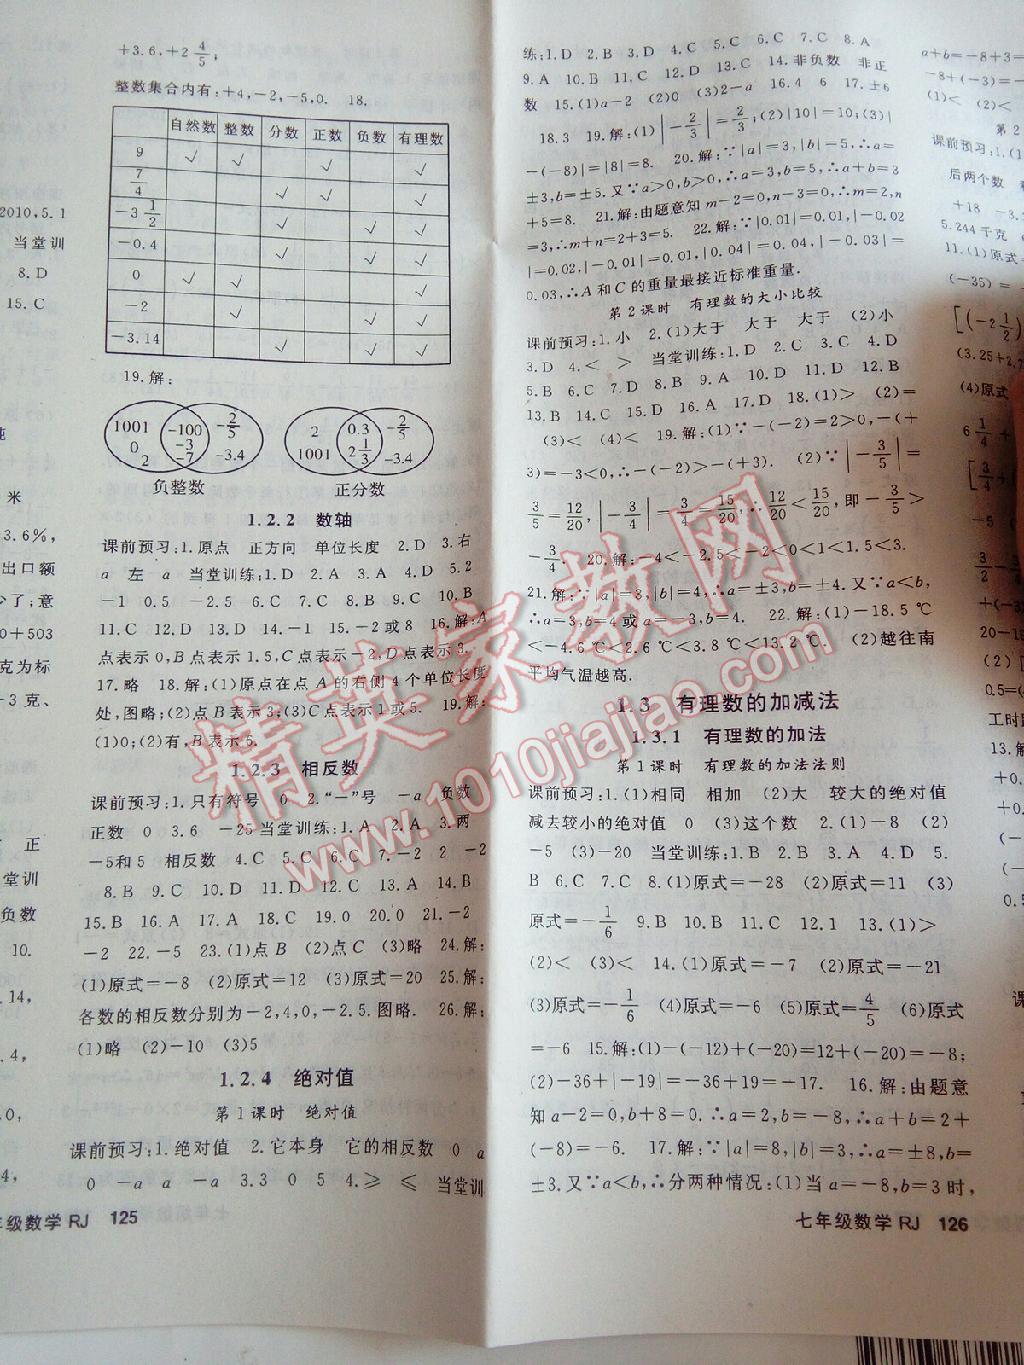 +3.6,+2 4/5;
整数集合内有:+4,-2,-5,0. 18.
自然数 整数 分数 正数 负数 有理数
9 √ √ √ √
7/4 √ √ √
-3 1/2 √ √ √
-0.4 √ √ √
0 √ √ √
-2 √ √ √
-3.14 √ √ √
19.解:
1001 0 2 -100 -3 -7 -2/5 -3.4
负整数
2 1001 0.3 2 1/3 -2/5 -3.4
正分数
1.2.2 数轴
课前预习:1.原点 正方向 单位长度 2.D 3.右
a 左 a 当堂训练:1.D 2.A 3.A 4.D 5.2
-1 0.5 -2.5 6.C 7.C 8.C 9.C 10.B
11.C 12.D 13.D 14.-1 15.-2或8 16.解:A
点表示0,B点表示1.5,C点表示-2,D点表示3.
17.略 18.解:(1)原点在点A的右侧4个单位长度
处,图略;(2)点B表示3;(3)点C表示1或5. 19.解:
(1)0;(2)有,B表示5.
1.2.3 相反数
课前预习:1.只有符号 0 2.“-”号 -a 负数
正数 0 3.6 -25 当堂训练:1.A 2.A 3.两
-5和5 相反数 4.C 5.C 6.C 7.-2 2 -2
8.B 9.C 10.D 11.D 12.C 13.A 14.B
15.B 16.A 17.A 18.C 19.0 20.0 21.-2
-2 22.-5 23.(1)点B (2)点C (3)略 24.解:
(1)原式=-8 (2)原式=12 (3)原式=20 25.解:
各数的相反数分别为-2,4,0,-2.5.图略. 26.解:
(1)略 (2)-10 (3)5
1.2.4 绝对值
第1课时 绝对值
课前预习:1.绝对值 2.它本身 它的相反数 0 a
0 -a a -a 3.3 0 5 4.≥ ≤ 当堂训
年级数学 RJ 125
练:1.D 2.B 3.D 4.C 5.C 6.C 7.C 8.A
9.A 10.B 11.C 12.D 13.C 14.非负数 非正
数 15.(1)a-2 (2)0 (3)2-a 16.4 6 17.±6
18.3 19.解:(1)|-2/3|=2/3;(2)|10|=10;(3)|
-(-8)|=|8|=8. 20.解:∵|a|=3,|b|=5,∴a=
±3,b=±5.又∵a>0,b>0,∴a=3,b=5,∴a+b=3
+5=8. 21.解:由题意知m-2=0,n-3=0,∴m=2,n
=3,∴m+n=2+3=5. 22.解:∵|0.01|=0.01,|-0.02
|=0.02,|-0.01|=0.01,|0.04|=0.04,|-0.03|=
0.03,∴A和C的重量最接近标准重量.
第2课时 有理数的大小比较
课前预习:1.小 2.(1)大于 大于 大于 (2)小
3.D 4.< > 当堂训练:1.D 2.C 3.C 4.D
5.B 6.C 7.D 8.B 9.A 10.A 11.D 12.B
13.B 14.C 15.D 16.A 17.D 18.(1)> (2)=
(3)< (4)< 19.解:(1)∵-(-2)=2>0,-(+
3)=-3<0,∴-(-2)>-(+3). (2)∵|-3/5|=
3/5=12/20,|-3/4|=3/4=15/20,∵12/20<15/20,即-3/5>
-3/4. 20.解:-4<-2.5<-2<0<1<1.5<3.
21.解:∵|a|=3,|b|=4,∴a=±3,b=±4.又∵a<b,
∴a=3,b=4或a=-3,b=4. 22.解:(1)-18.5℃
<-4.6℃<2.6℃<3.8℃<13.2℃. (2)越往南
平均气温越高.
1.3 有理数的加减法
1.3.1 有理数的加法
第1课时 有理数的加法法则
课前预习:1.(1)相同 相加 (2)大 较大的绝对值
减去较小的绝对值 0 (3)这个数 2.(1)-8 (2)
-5 (3)-20 当堂训练:1.B 2.B 3.A 4.D 5.
B 6.C 7.C 8.(1)原式=-28 (2)原式=11 (3)
原式=-1/6 9.B 10.B 11.C 12.1 13.(1)>
(2)< (3)< 14.(1)原式=-7 (2)原式=-21
(3)原式=-1/6 (4)原式=-6 (5)原式=4/5 (6)原式
=-6 15.解:(1)-(-12)+(-20)=12+(-20)=-8;
(2)-36+|-19|=-36+19=-17. 16.解:由题意
知a-2=0,b+8=0.∴a=2,b=-8,∴a+b=2+
(-8)=-6. 17.解:∵|a|=8,|b|=3,∴a=±8,b=
±3.又∵a<b,∴分两种情况:(1)当a=-8,b=3时,
七年级数学 RJ 126
2010,5.1
当堂训
8.D
15.C
米
3.6%,
出口额
少了;意
0+503
克为标
-3克、
正
堂训
负数
10.
.14,
.4,
a+b=-8+3=
-8+(-3)=
(1)< (2)<
第2
课前预习:1.(1
后两个数
+18 -3.
5.244千克
11.(1)原式=
(-35)=
[(-2 1/2)
(3.25+2.7
(4)原式
6 1/4+
[3/4+
-5
3/2-
+(-3)
20-18
(2)[
0.5=(
工时
13.解
+0.
精英家教网
www.1010jiajiao.com